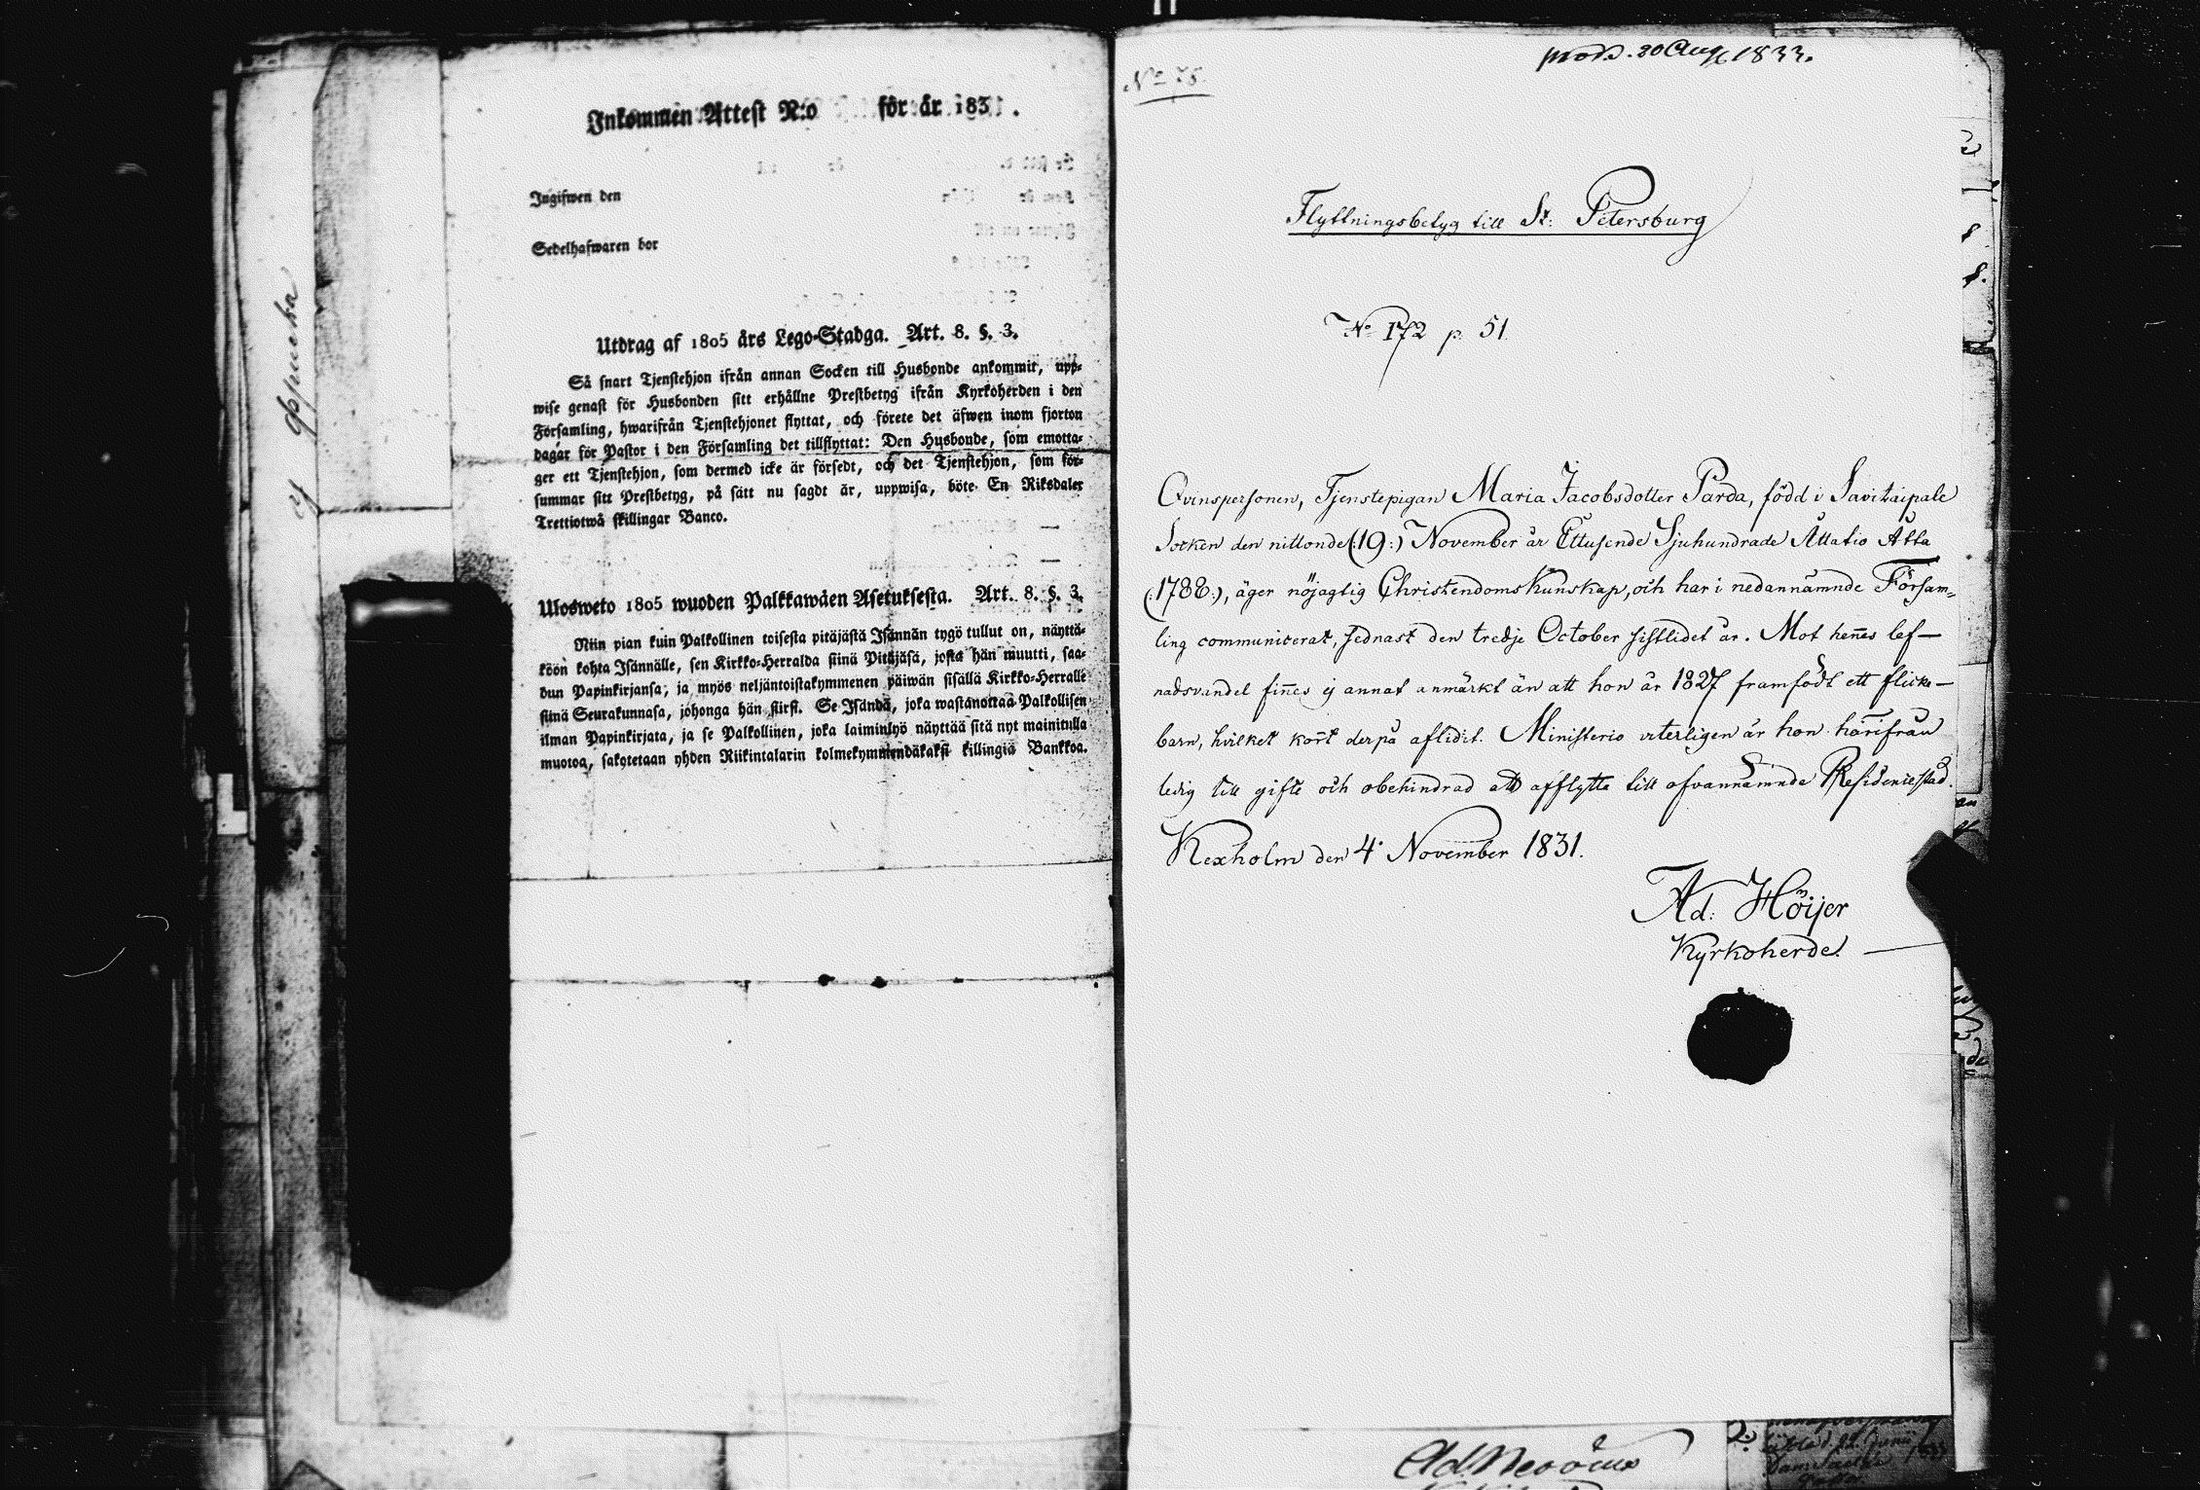 Inkommen Attest N:o för år 183 .
Ingifwen den
Sedelhafwaren bor
Utdrag af 1805 års Lego-Stadga. Art. 8. §. 3.
Så snart Tjenstehjon ifrån annan Socken till Husbonde ankommit, upp-
wise genast för Husbonden sitt erhållne Prestbetyg ifrån Kyrkoherden i den
Församling, hwarifrån Tjenstehjonet flyttat, och förete det äfwen inom fjorton
dagar för Pastor i den Församling det tillflyttat: Den Husbonde, som emotta-
ger ett Tjenstehjon, som dermed icke är försedt, och det Tjenstehjon, som för-
summar sitt Prestbetyg, på sätt nu sagdt är, uppwisa, böte En Riksdaler
Trettiotwå skillingar Banco.
Ulosweto 1805 wuoden Palkkawäen Asetuksesta. Art. 8. §. 3.
Niin pian kuin Palkollinen toisesta pitäjästä Isännän tygö tullut on, näyttä-
köön kohta Isännälle, sen Kirkko-Herralda siinä Pitäjäsä, josta hän muutti, saa-
dun Papinkirjansa; ja myös neljäntoistakymmenen päiwän sisällä Kirkko-Herralle
siinä Seurakunnasa, johonga hän siirsi. Se Isändä, joka wastanottaa Palkollisen
ilman Papinkirjata, ja se Palkollinen, joka laiminlyö näyttää sitä nyt mainitulla
muotoa, sakytetaan yhden Riikintalarin kolmekymmendäkaksi killingiä Bankkoa.
No 78.
prod. 30 Aug 1833.
Flyttningsbetyg till St: Petersburg
No 172 p. 51
Qvinspersonen, Tjenstepigan Maria Jacobsdotter Parda, född i Savitaipale
Socken den nittonde (:19:) November år Ettusende Sjuhundrade Åttatio Åtta
(:1788:), äger nöjagtig Christendomskunskap, och har i nedannämnde Försam-
ling communicerat, sednast den tredje October sistlidet år. Mot hennes lef-
nadsvandel finnes ej annat anmärkt än att hon år 1827 framfödt ett flicke-
barn, hvilket kort derpå aflidit. Ministerio veterligen är hon härifrån
ledig till gifte och obehindrad att afflytta till ofvannämnde Residencestad.
Kexholm den 4 November 1831.
Ad: Höijer
Kyrkoherde.